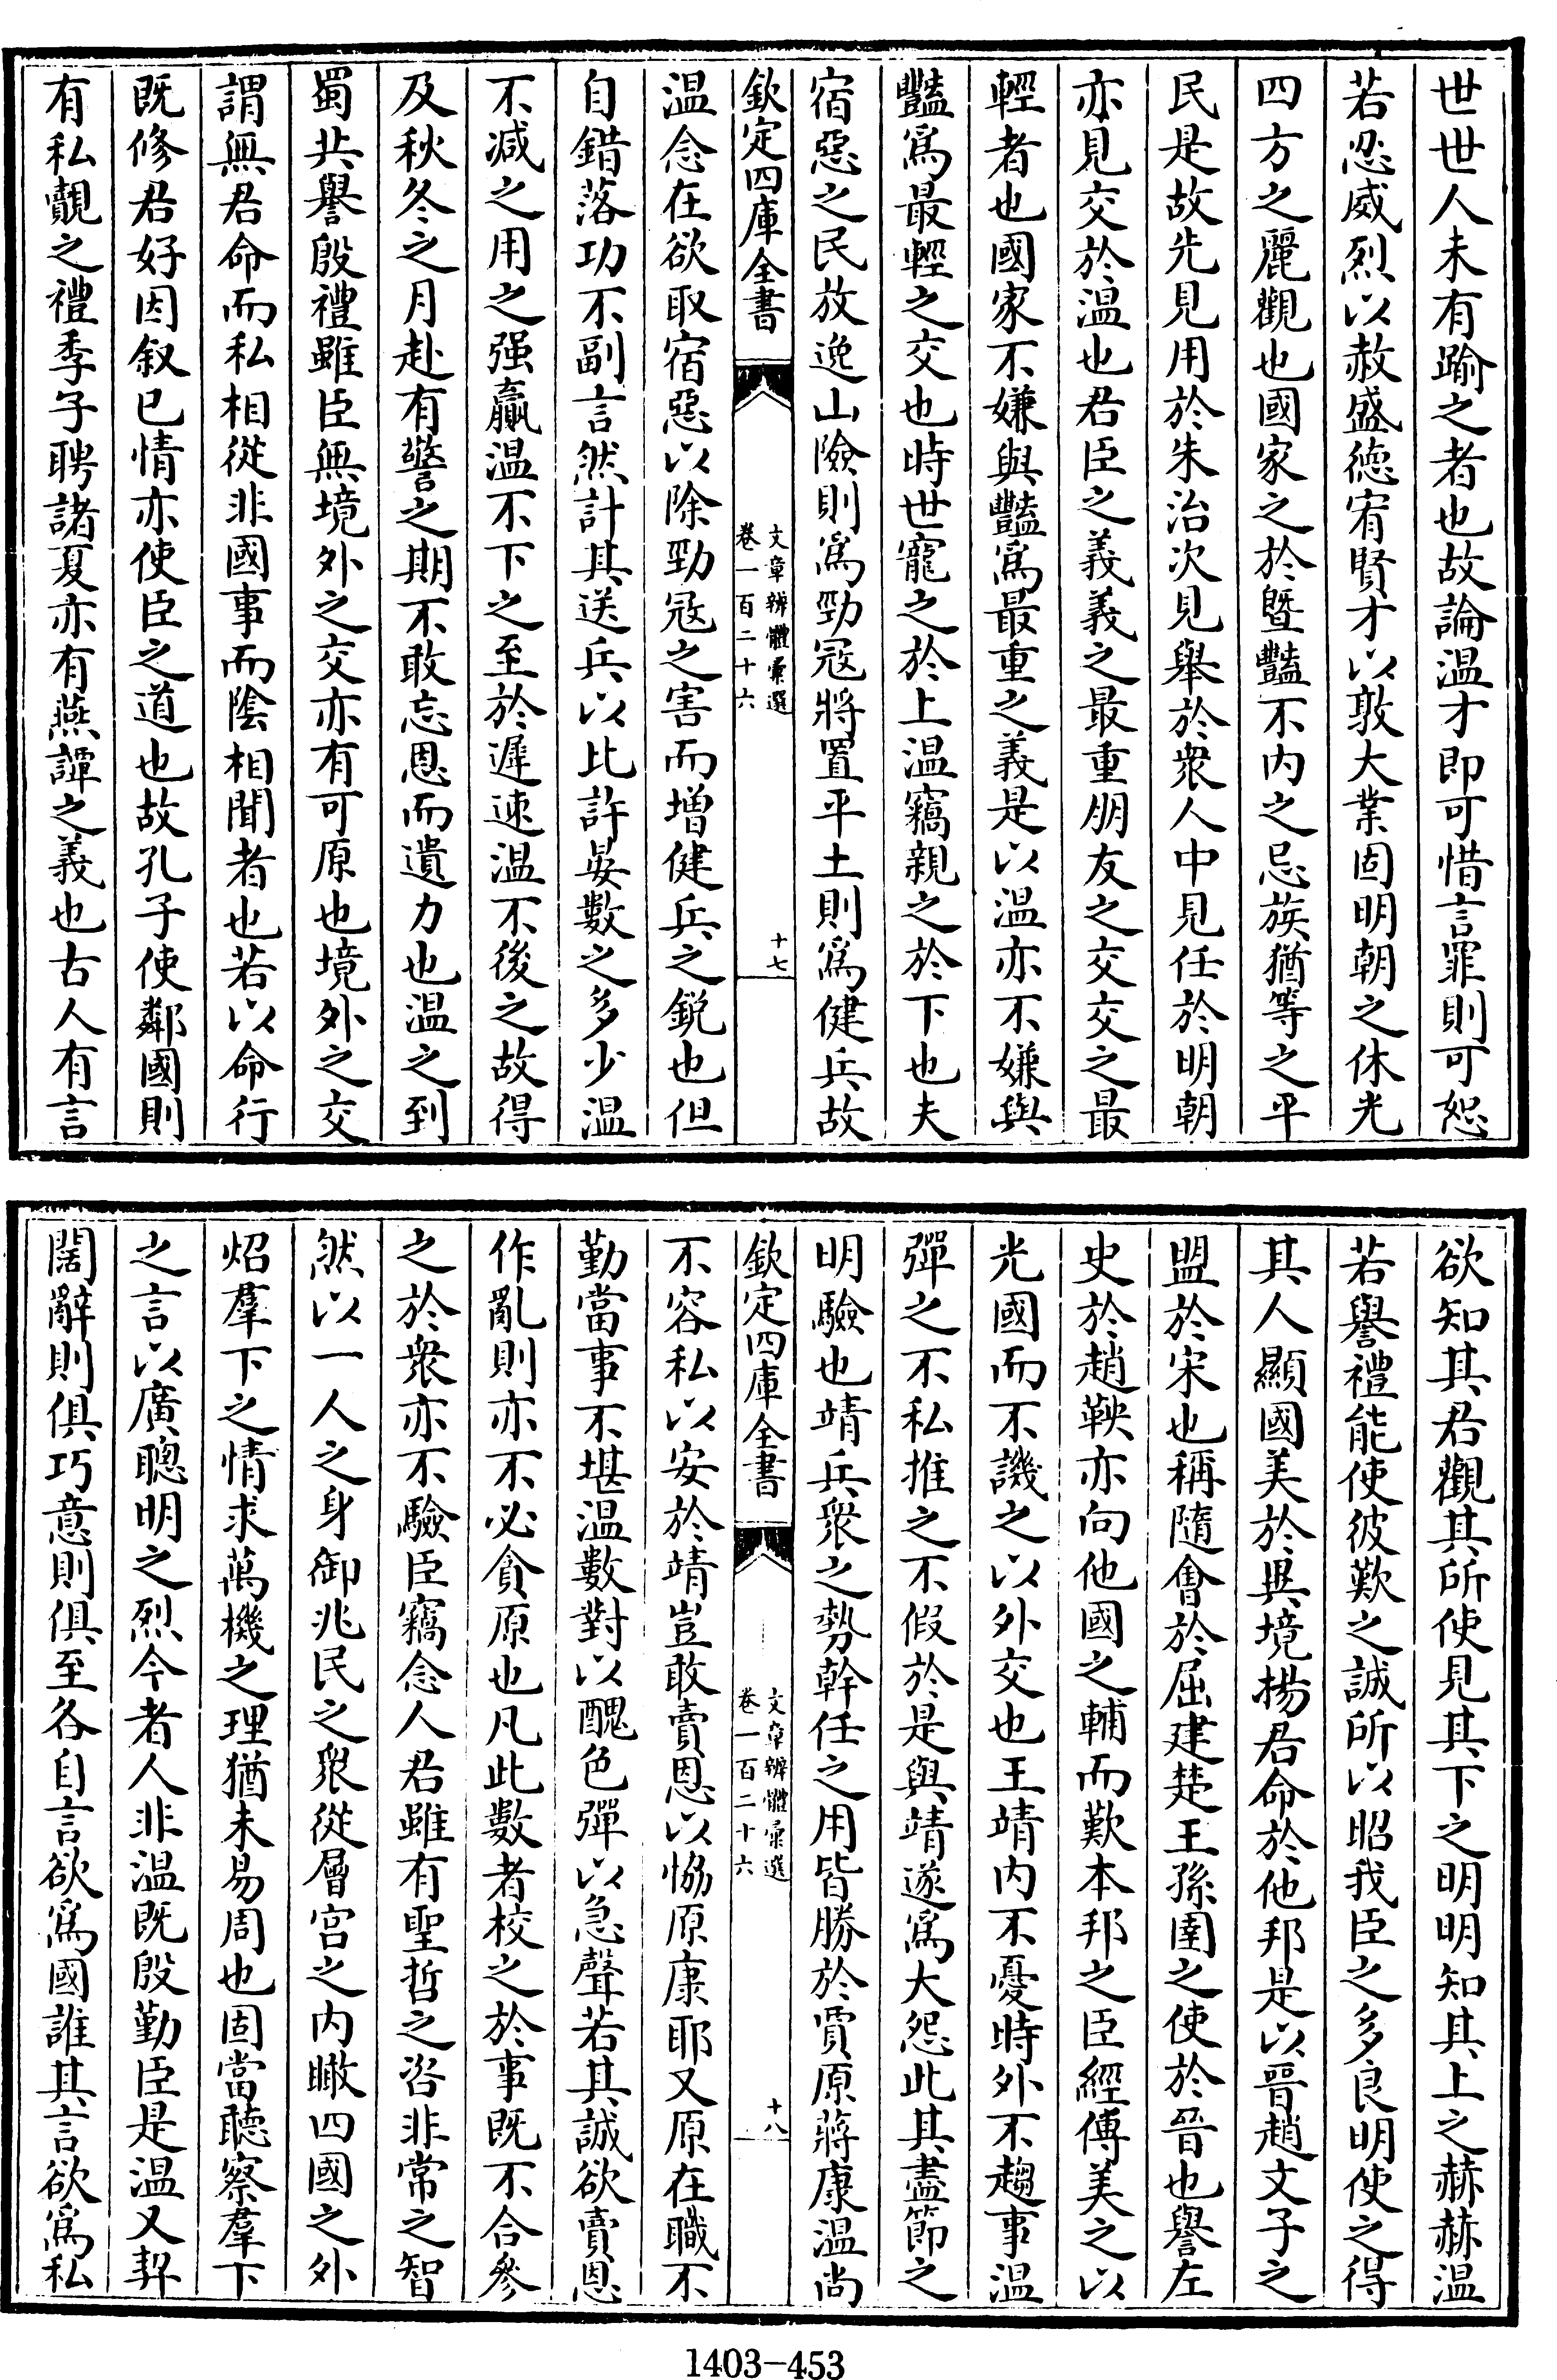 世世人未有踰之者也故論温才即可惜言罪則可恕
若忍威烈以赦盛徳宥賢才以敦大業固明朝之休光
四方之麗觀也國家之於暨豔不内之忌族猶等之平
民是故先見用於朱治次見舉於衆人中見任於明朝
亦見交於温也君臣之義義之最重朋友之交交之最
輕者也國家不嫌與豔為最重之義是以温亦不嫌與
豔為最輕之交也時世寵之於上温竊親之於下也夫
宿惡之民放逸山險則為勁寇將置平土則為健兵故
欽定四庫全書
文章辨體彙選
卷一百二十六
十七
温念在欲取宿惡以除勁寇之害而增健兵之銳也但
自錯落功不副言然計其送兵以比許晏數之多少温
不减之用之强羸温不下之至於遲速温不後之故得
及秋冬之月赴有警之期不敢忘恩而遺力也温之到
蜀共譽殷禮雖臣無境外之交亦有可原也境外之交
謂無君命而私相從非國事而陰相聞者也若以命行
既修君好因叙已情亦使臣之道也故孔子使鄰國則
有私覿之禮季子聘諸夏亦有燕譚之義也古人有言
欲知其君觀其所使見其下之明明知其上之赫赫温
若譽禮能使彼歎之誠所以昭我臣之多良明使之得
其人顯國美於異境揚君命於他邦是以晉趙文子之
盟於宋也稱隨會於屈建楚王孫圉之使於晉也譽左
史於趙鞅亦向他國之輔而歎本邦之臣經傅美之以
光國而不譏之以外交也王靖内不憂時外不趨事温
彈之不私推之不假於是與靖遂為大怨此其盡節之
明驗也靖兵衆之勢幹任之用皆勝於賈原蔣康温尚
欽定四庫全書
文章辨體彙選
卷一百二十六
十八
不容私以安於靖豈敢賣恩以恊原康耶又原在職不
勤當事不堪温數對以醜色彈以急聲若其誠欲賣恩
作亂則亦不必貪原也凡此數者校之於事既不合參
之於衆亦不驗臣竊念人君雖有聖哲之咨非常之智
然以一人之身御兆民之衆從層宫之内瞰四國之外
炤羣下之情求萬機之理猶未易周也固當聽察羣下
之言以廣聰明之烈今者人非温既殷勤臣是温又契
闊辭則俱巧意則俱至各自言欲為國誰其言欲為私
1403-453